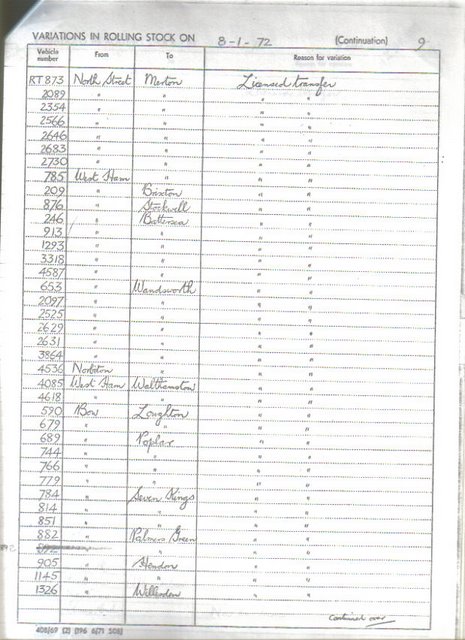 VARIATIONS IN ROLLING STOCK ON 8-1-72 (Continuation) 9
Vehicle number From To Reason for variation
RT 873 North Street Merton Licensed transfer
2089 " " " "
2354 " " " "
2566 " " " "
2646 " " " "
2683 " " " "
2730 " " " "
785 West Ham " " "
209 " Brixton " "
876 " Stockwell " "
246 " Battersea " "
913 " " " "
1293 " " " "
3318 " " " "
4587 " " " "
653 " Wandsworth " "
2097 " " " "
2525 " " " "
2629 " " " "
2631 " " " "
3864 " " " "
4536 Norbiton " " "
4085 West Ham Walthamstow " "
4618 " " " "
590 Bow Loughton " "
679 " " " "
689 " Poplar " "
744 " " " "
766 " " " "
779 " " " "
784 " Seven Kings " "
814 " " " "
851 " " " "
882 " Palmers Green " "
892 " " "
905 " Hendon " "
1145 " " " "
1326 " Willesden " "
Continued over
408/69 (2) (196 6/71 50S)